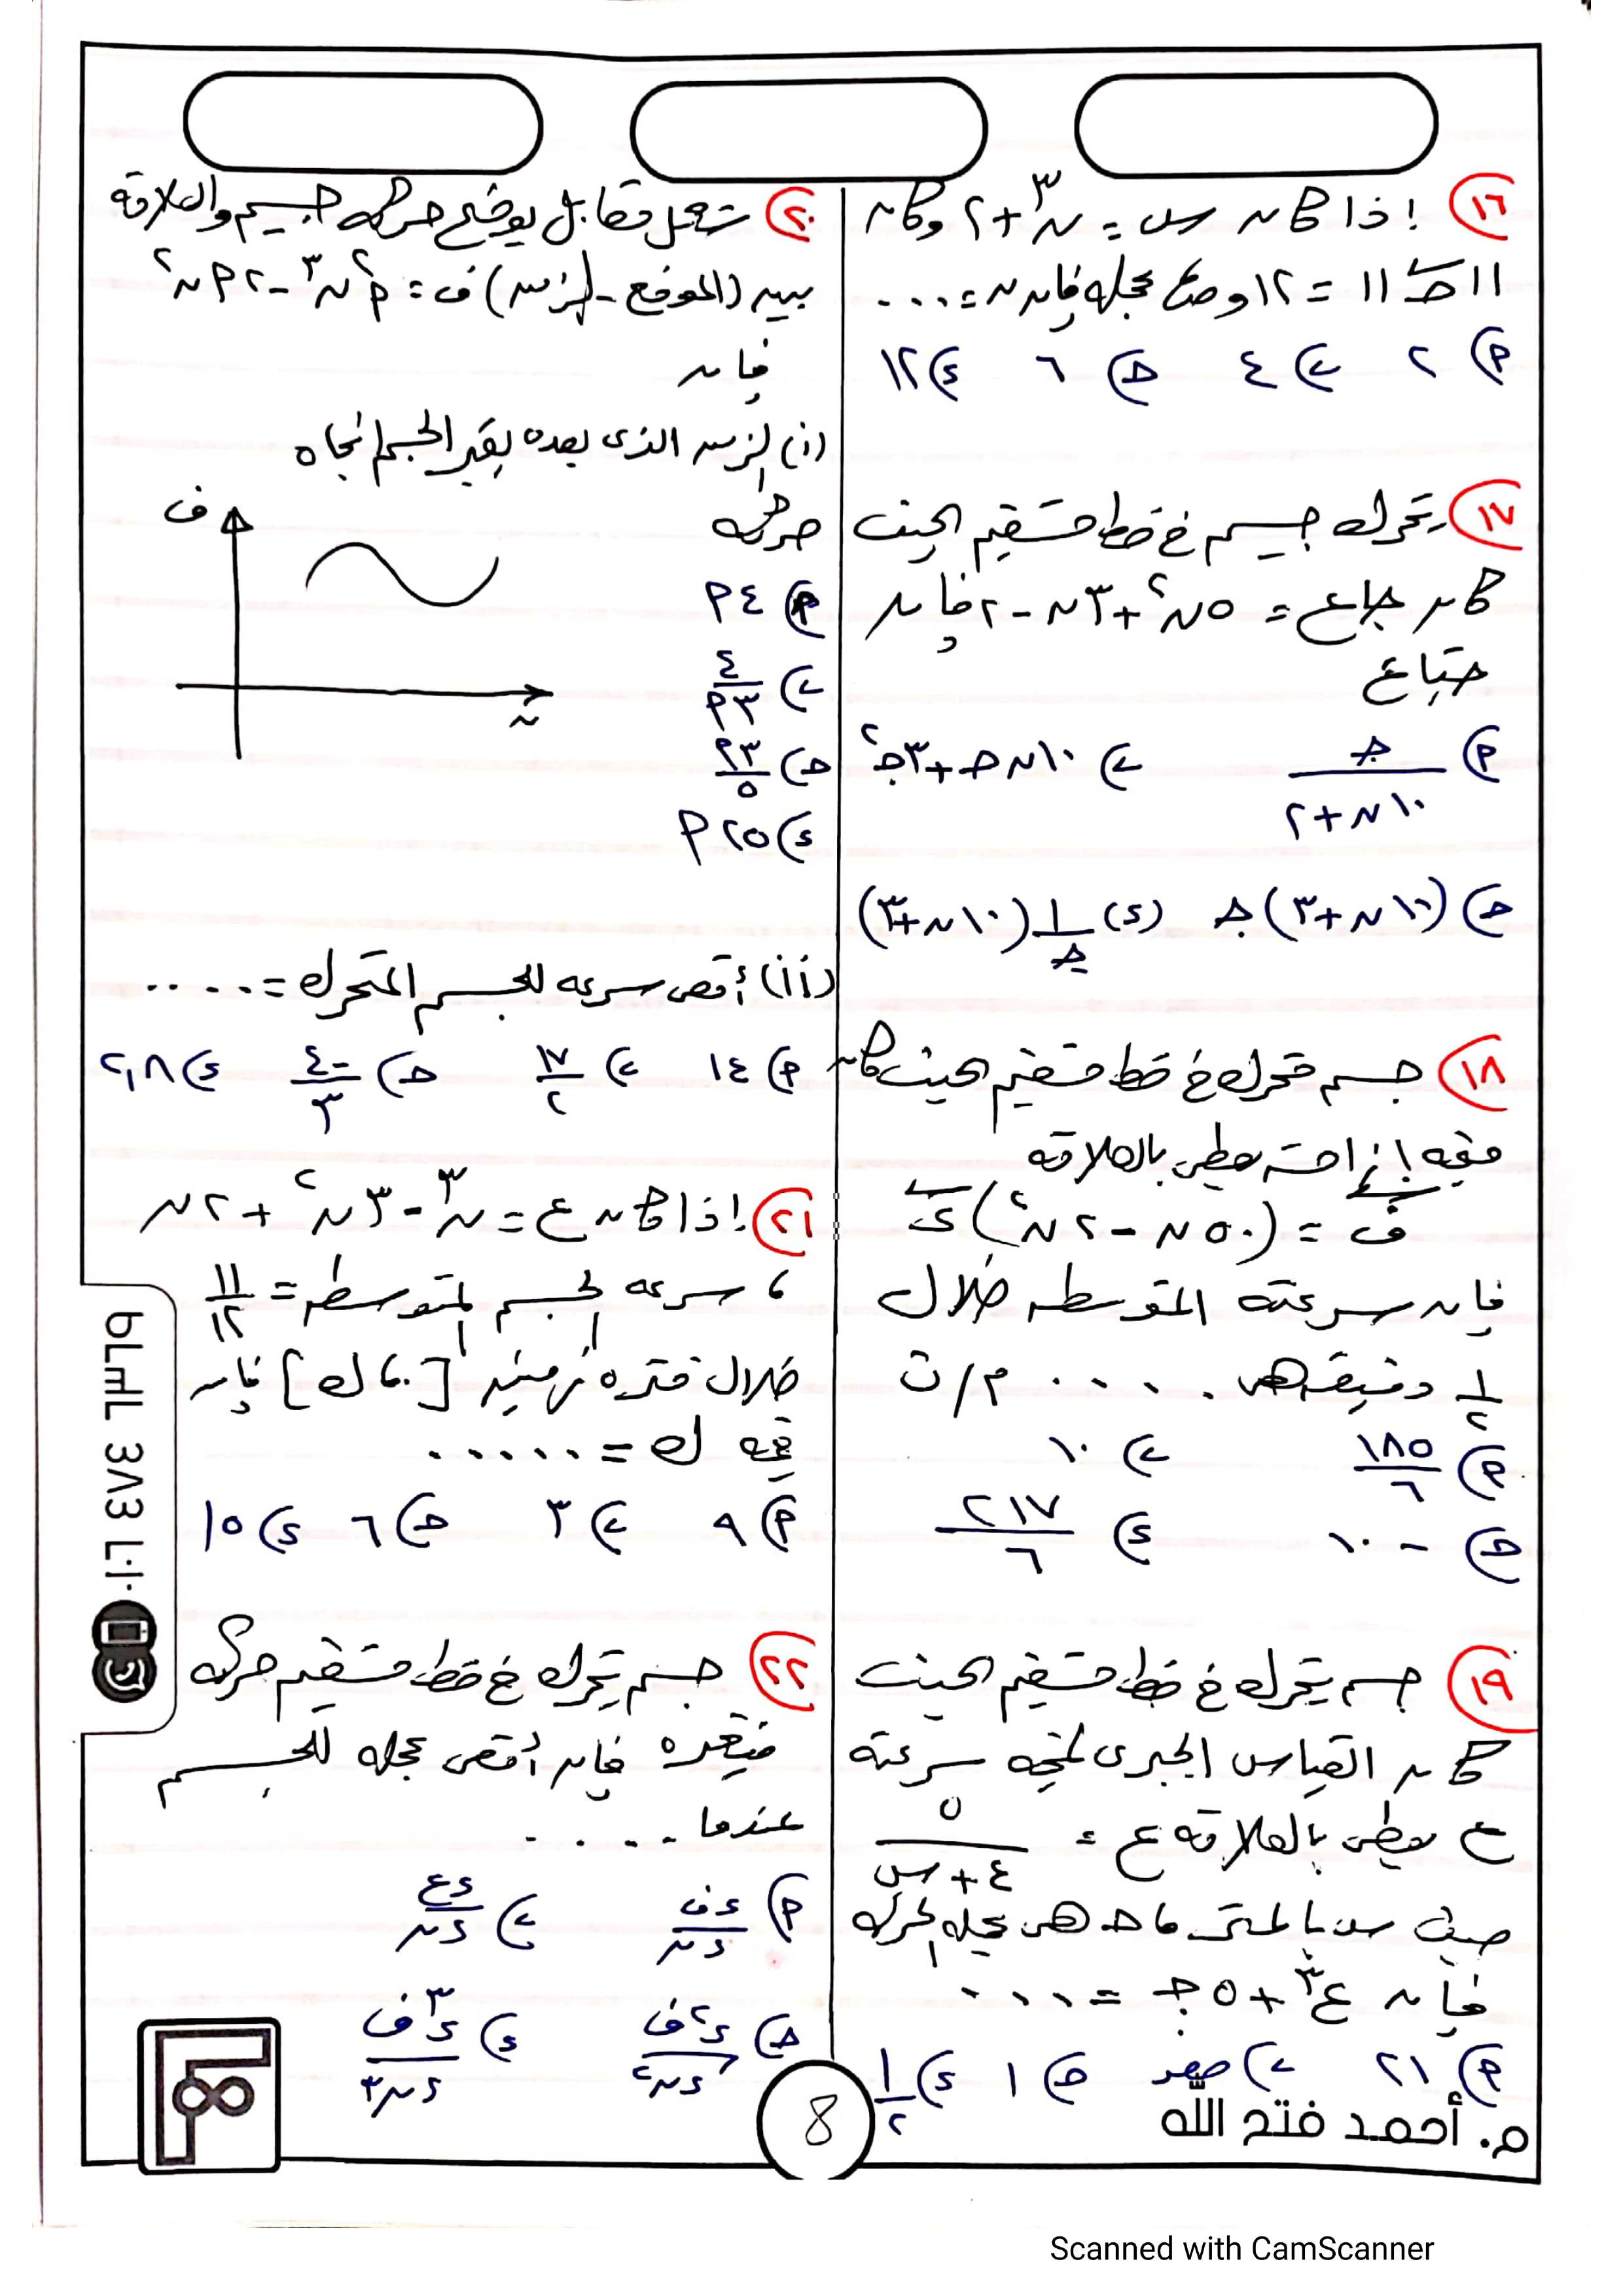 ١٦ إذا كان س = ن٣ + ٢ وكان
||جـ|| = ١٢ وحدة عجلة فإن ن = ....
أ) ٢ ب) ٤ جـ) ٦ د) ١٢
١٧ يتحرك جسم في خط مستقيم بحيث
كان جا ع = ٥ن٢ + ٣ن - ٢ فإن
جتا ع
أ) جـ / ١٠ن + ٢ ب) ١٠ن جـ + ٣جـ٢
جـ) (١٠ن + ٣) جـ (د) ١/جـ (١٠ن + ٣)
١٨ جسم متحرك في خط مستقيم بحيث كان
متجه إزاحته يعطى بالعلاقة
ف = (٥٠ن - ٢ن٢) ى
فإن سرعته المتوسطة خلال
١/٢ دقيقة هى .... م/ث
أ) ١٨٥/٦ ب) ١٠
جـ) -١٠ د) ٢١٧/٦
١٩ جسم يتحرك في خط مستقيم بحيث
كان القياس الجبرى لمتجه سرعته
ع يعطى بالعلاقة ع = ٥ / ٤ + س
حيث س بالمتر، حـ هى عجلة الحركة
فإن ع٣ + ٥جـ = ....
أ) ٢١ ب) صفر جـ) ١ د) ١/٢
٢٠ شكل مقابل يوضح حركة جسم والعلاقة
بين (الموضع - الزمن) ف = أ٢ن٣ - ٢أن٢
فإن
(i) الزمن الذى بعده يغير الجسم اتجاه
حركته
أ) ٤أ
ب) ٤/٣أ
جـ) ٣أ/٥
د) ٢٥أ
ف
ن
(ii) أقصى سرعة للجسم المتحرك = .....
أ) ١٤ ب) ١٧/٢ جـ) -٤/٣ د) ٢,٨
٢١ إذا كان ع = ن٣ - ٣ن٢ + ٢ن
، سرعة الجسم المتوسطة = ١١/١٢
خلال فترة زمنية [٠، ك] فإن
قيمة ك = ......
أ) ٩ ب) ٣ جـ) ٦ د) ١٥
٢٢ جسم يتحرك في خط مستقيم حركة
متغيرة فإن أقصى عجلة للجسم
عندما ....
أ) دف/دن ب) دع/دن
جـ) د٢ف/دن٢ د) د٣ف/دن٣
م. أحمد فتح الله
8
Scanned with CamScanner